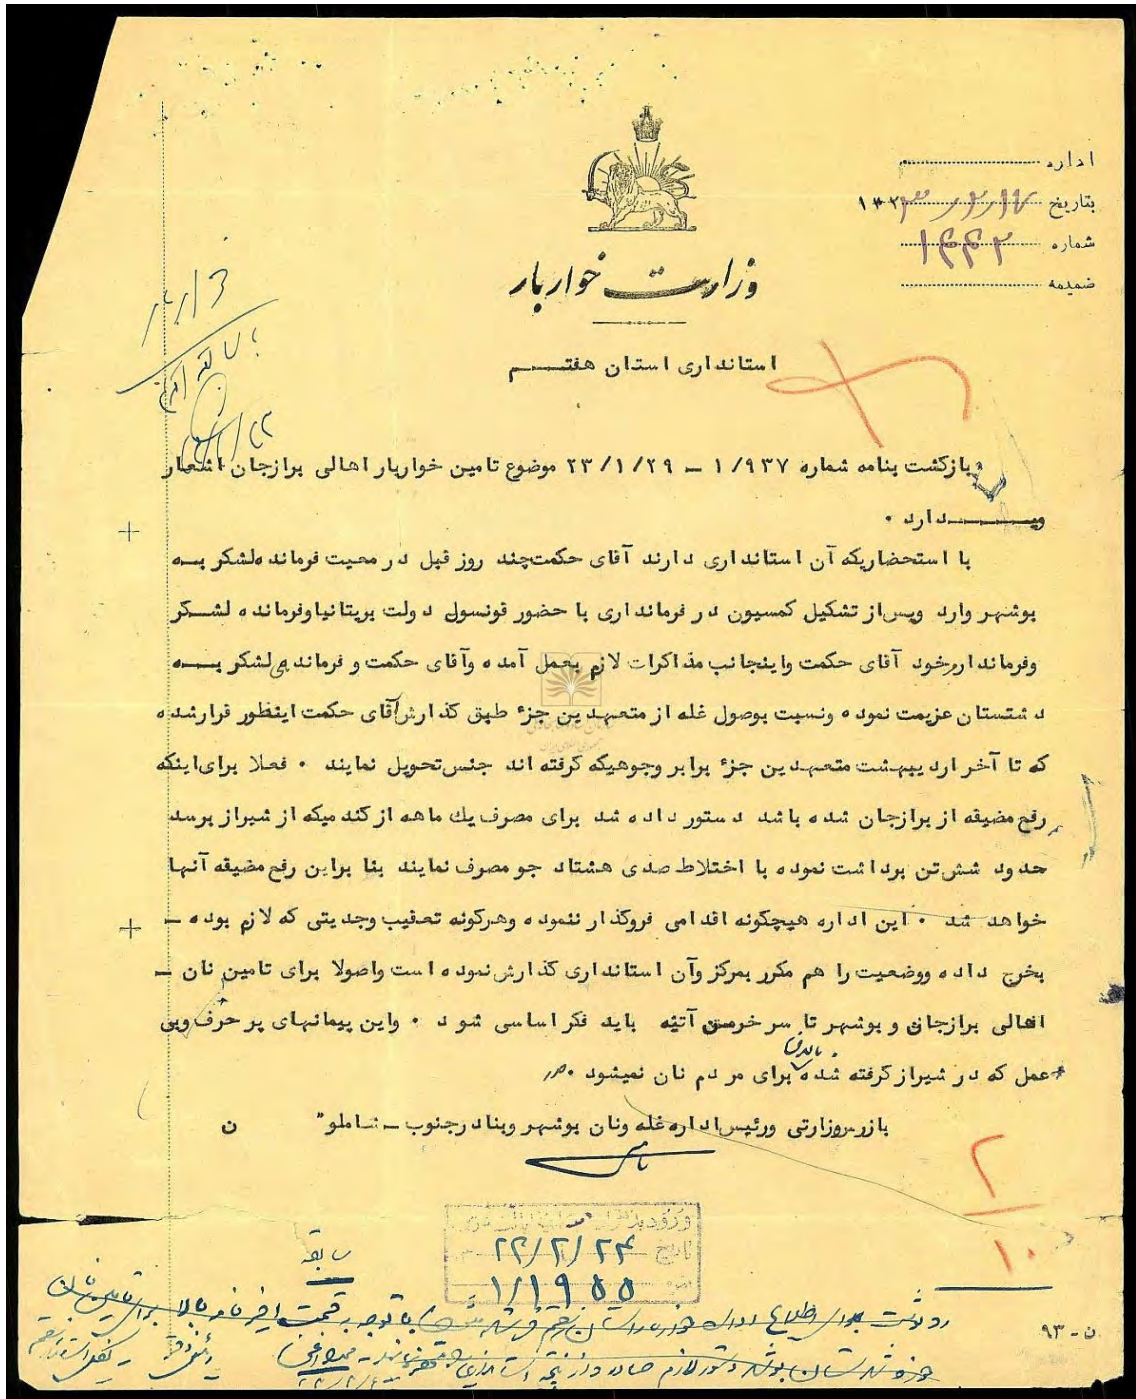 اداره
بتاریخ ۱۷/۲/۱۳۲۳
شماره ۱۴۴۲
ضمیمه
وزارت خواربار
استانداری استان هفتــــم
بازگشت بنامه شماره ۱/۹۳۷ – ۲۳/۱/۲۹ موضوع تامین خواربار اهالی برازجان اشعار
میـــــدارد ۰
با استحضاریکه آن استانداری دارند آقای حکمت چند روز قبل در معیت فرمانده لشکر بـــه
بوشهر وارد وپس از تشکیل کمسیون در فرمانداری با حضور قونسول دولت بریتانیا وفرمانده لشــکر
وفرماندار وخود آقای حکمت واینجانب مذاکرات لازم بعمل آمده وآقای حکمت و فرمانده لشکر بـــه
دشتستان عزیمت نموده ونسبت بوصول غله از متعهدین جزء طبق گذارش آقای حکمت اینطور قرارشده
که تا آخر اردیبهشت متعهدین جزء برابر وجوهیکه گرفته اند جنس تحویل نمایند ۰ فعلا برای اینکه
رفع مضیقه از برازجان شده باشد دستور داده شد برای مصرف یك ماهه از گندمیکه از شیراز برسد
حدود شش تن برداشت نموده با اختلاط صدی هشتاد جو مصرف نمایند بنا براین رفع مضیقه آنها
خواهد شد ۰ این اداره هیچگونه اقدامی فروگذار ننموده وهرگونه تعقیب وجدیتی که لازم بوده –
بخرج داده ووضعیت را هم مکرر بمرکز وآن استانداری گذارش نموده است واصولا برای تامین نان –
اهالی برازجان و بوشهر تا سر خرمن آتیه باید فکر اساسی شود ۰ واین پیمانهای پر حرف وبی
عمل که در شیراز گرفته شده برای مردم نان نمیشود ۰
بازرس وزارتی ورئیس اداره غله ونان بوشهر وبنادر جنوب – شاملو
ن
۲
۱۰
تاریخ ۲۳/۲/۲۴
۱/۱۹۵۵
سابقه
ن - ۹۳